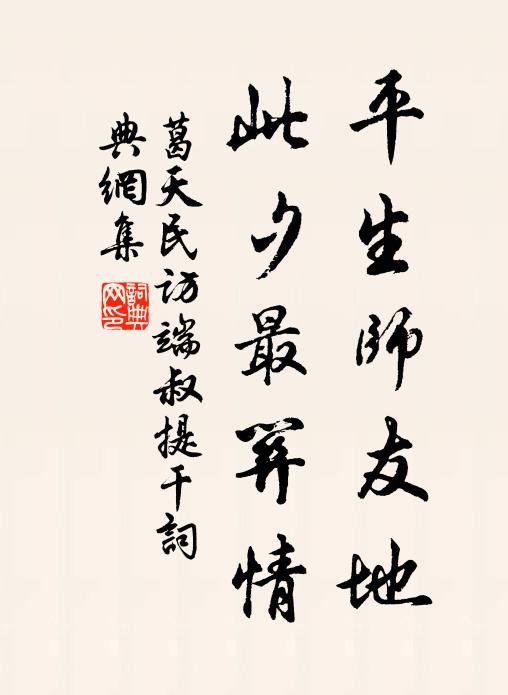 平生師友地
此夕最關情
葛天民訪端叔提干詞
典網集
詞典
网印